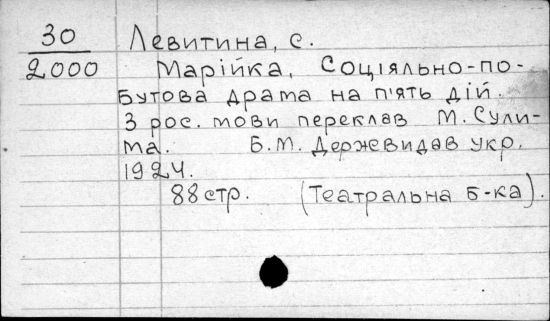 30 Левитина, С.
2000 Марійка, Соціяльно-по-
бутова драма на п'ять дій.
З рос. мови переклав М. Сули-
ма. Б.М. Державидав укр.
1924.
88 стр. (Театральна б-ка).